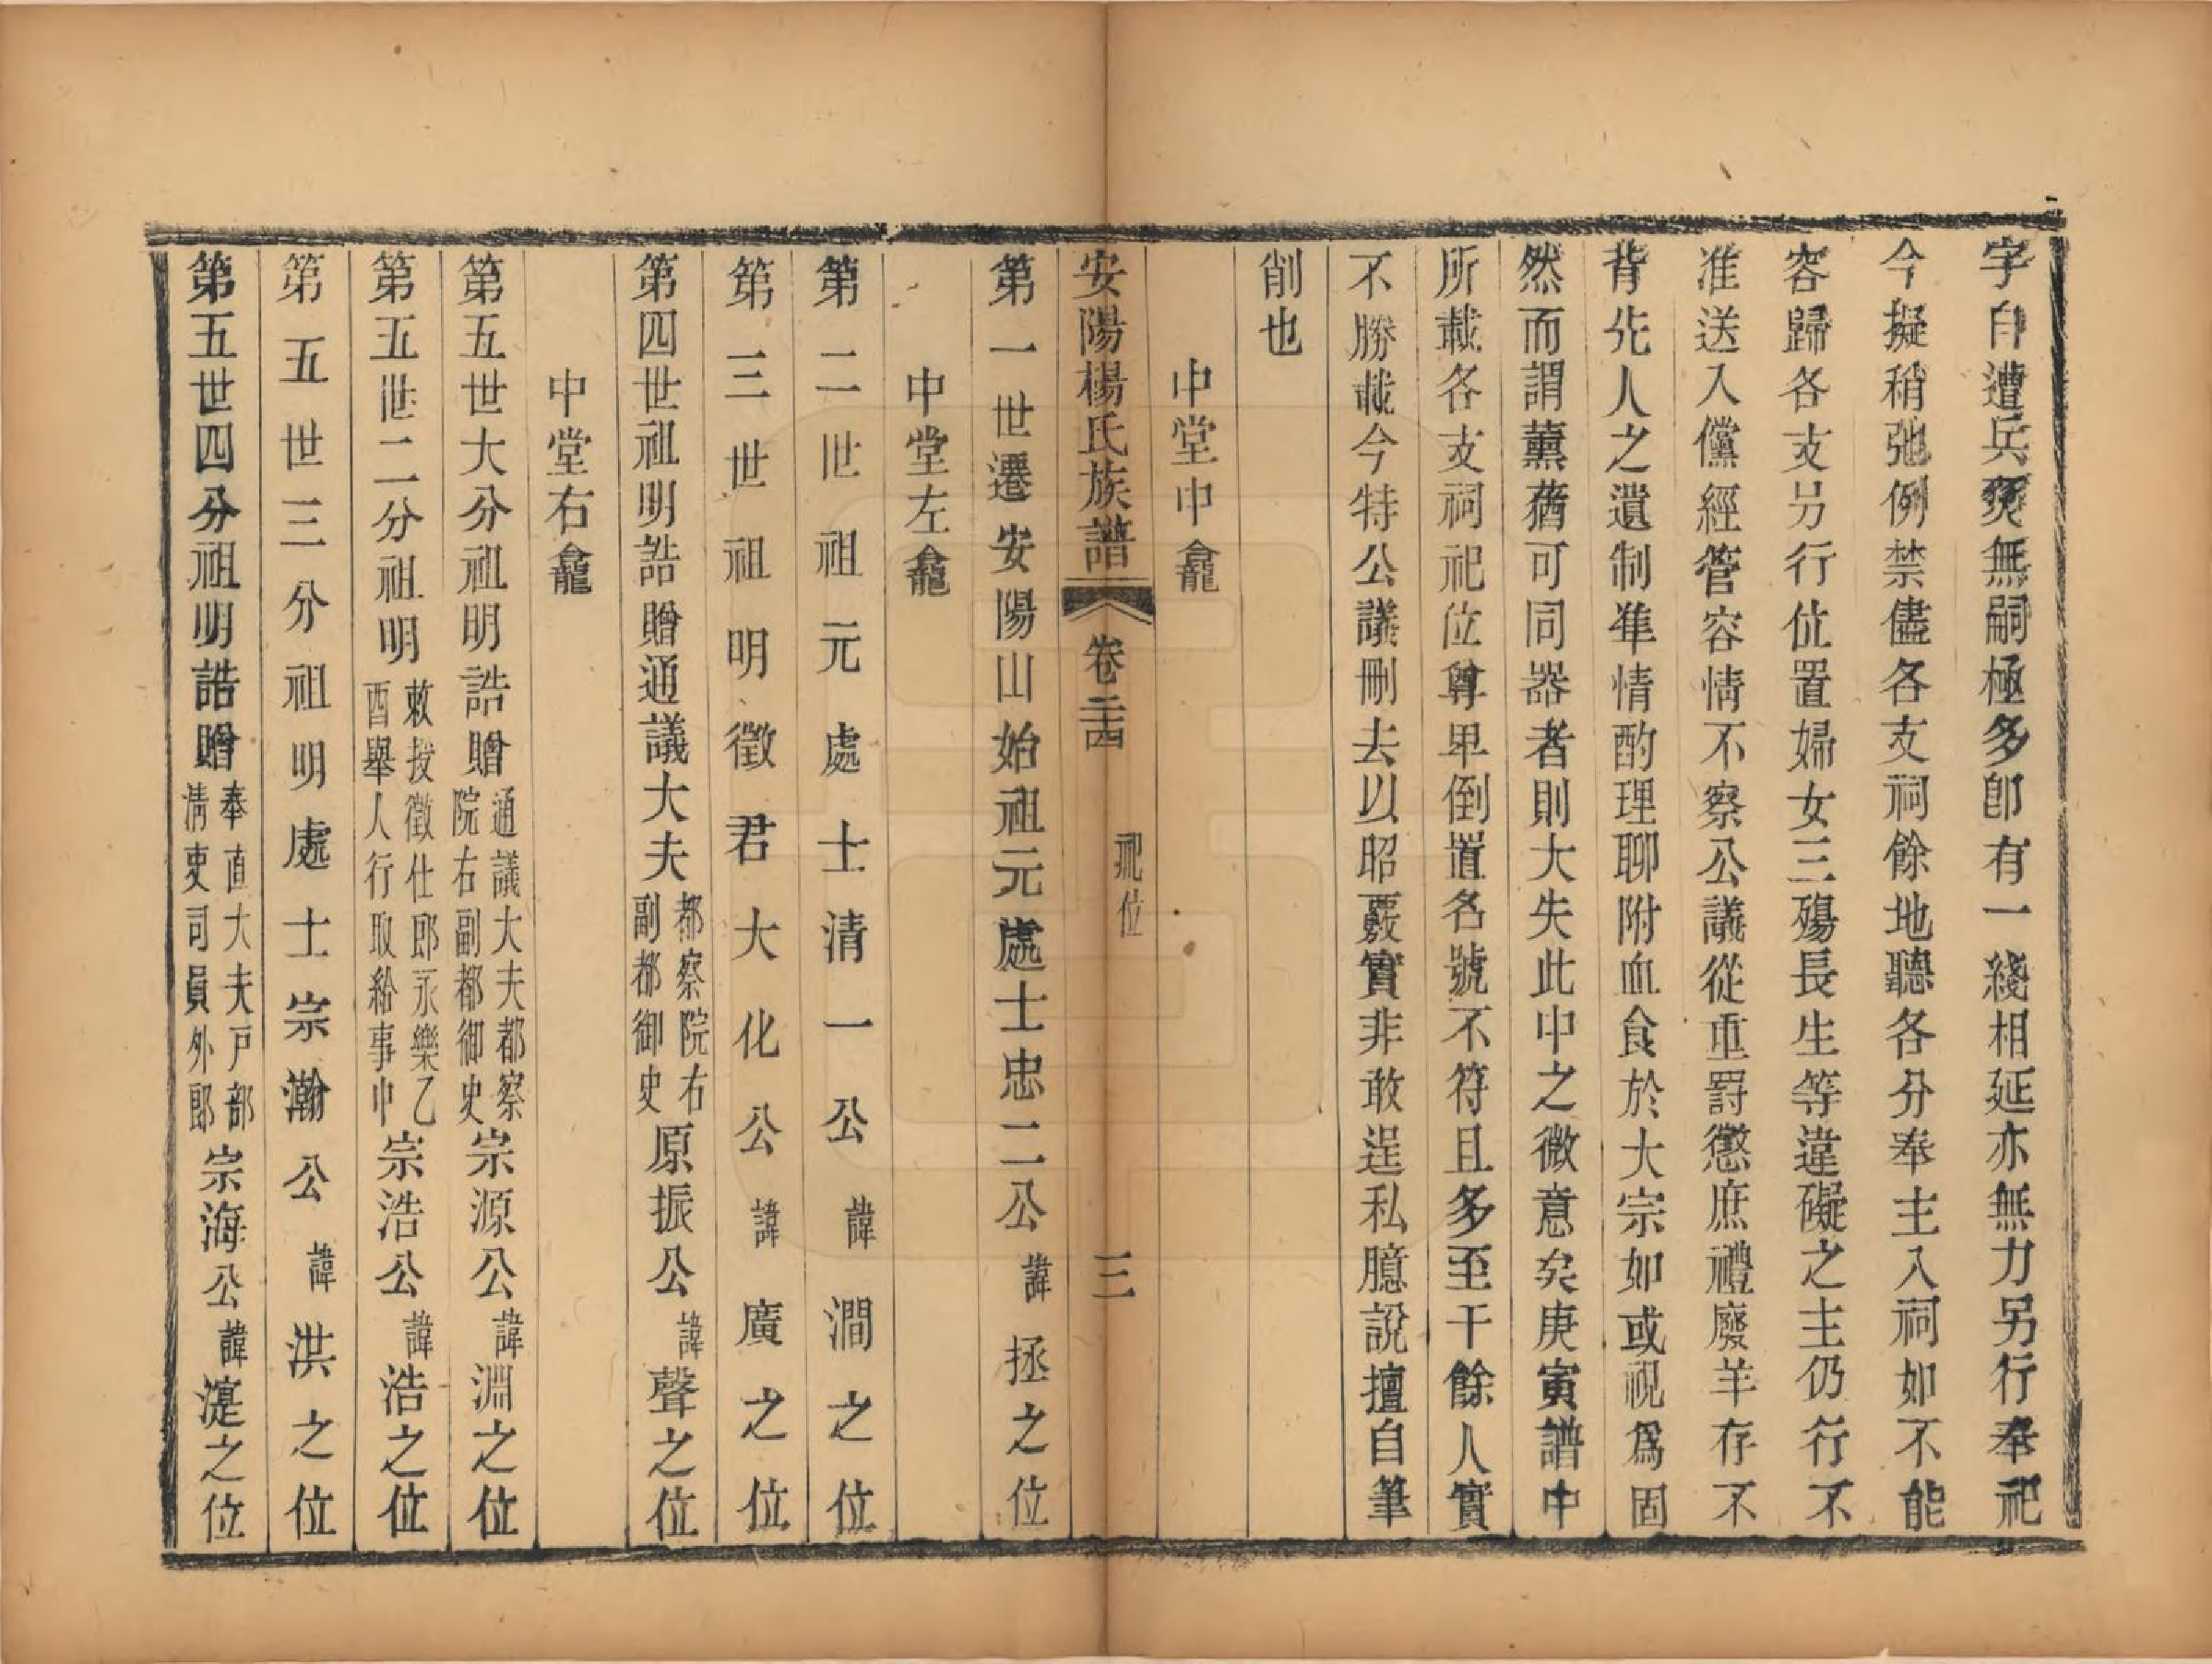 字自遭兵燹無嗣極多卽有一綫相延亦無力另行奉祀
今擬稍弛例禁儘各支祠餘地聽各分奉主入祠如不能
容歸各支另行位置婦女三殤長生等違礙之主仍行不
准送入儻經管容情不察公議從重罰懲庶禮廢羊存不
背先人之遺制準情酌理聊附血食於大宗如或視爲固
然而謂薰蕕可同器者則大失此中之微意矣庚寅譜中
所載各支祠祀位尊卑倒置名號不符且多至千餘人實
不勝載今特公議刪去以昭覈實非敢逞私臆說擅自筆
削也
中堂中龕
安陽楊氏族譜 卷二十四 祀位 三
第一世遷安陽山始祖元處士忠二公諱拯之位
中堂左龕
第二世祖元處士清一公諱澗之位
第三世祖明徵君大化公諱廣之位
第四世祖明誥贈通議大夫都察院右副都御史原振公諱聲之位
中堂右龕
第五世大分祖明誥贈通議大夫都察院右副都御史宗源公諱淵之位
第五世二分祖明敕授徵仕郎永樂乙酉舉人行取給事中宗浩公諱浩之位
第五世三分祖明處士宗瀚公諱洪之位
第五世四分祖明誥贈奉直大夫戶部清吏司員外郎宗海公諱濎之位